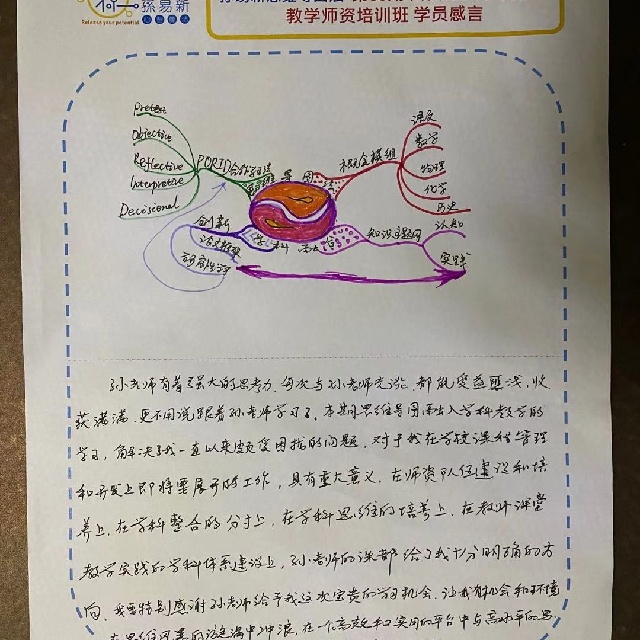 孫易新
Release your potential
教学师资培训班 学员感言
Pretest
Objective
Reflective
Interpretive
Decisional
PORID合作学习法
思维导图
概念模组
课展
数学
物理
化学
历史
创新
学科
知识主题网
认知
实践
孙老师有着强大的思考力,每次与孙老师交谈,都能受益匪浅,收
获满满,更不用说跟着孙老师学习了。本期思维导图融入学科教学的
学习,解决了我一直以来颇受困扰的问题,对于我在学校课程管理
和开发上即将要展开的工作,具有重大意义。在师资队伍建设和培
养上,在学科整合的分寸上,在学科思维的培养上,在教师课堂
教学实践的学科体系建设上,孙老师的课都给了我十分明确的方
向。我要特别感谢孙老师给予我这次宝贵的学习机会,让我有机会和环境
在思维风暴的游海中冲浪,在一个高效和实用的平台中与高水平的思